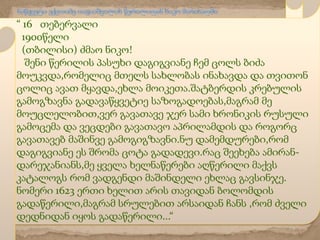 “ 16   თებერვალი
1900წელი
(თბილისი) ძმაო ნიკო!
შენი წერილის პასუხი დაგიგვიანე ჩემ ცოლს ბიძა
მოუკვდა,რომელიც მთელს სახლობას ინახავდა და თვითონ
ცოლიც ავათ მყავდა,ეხლა მოიკეთა.შატბერდის კრებულის
გამოგზავნა გადავაწყვეტიე საზოგადოებას,მაგრამ მე
მოუცლელობით,ვერ გავათავე ჯერ სამი ხრონიკის რუსული
გამოცემა და ვეცდები გავათავო აპრილამდის და როგორც
გავათავებ მაშინვე გამოგიგზავნი.ნუ დამემდურები,რომ
დაგიგვიანე ეს შრომა ცოტა გადადევი.რაც შეეხება ამირან-
დარეჯანიანს,მე ყველა ხელნაწერები აღწერილი მაქვს
კატალოგს რომ ვადგენდი მაშინდელი ეხლაც გავსინჯე.
ნომერი 1623 ერთი ხელით არის თავიდან ბოლომდის
გადაწერილი,მაგრამ სრულებით არსაიდან ჩანს ,რომ ძველი
დედნიდან იყოს გადაწერილი...“